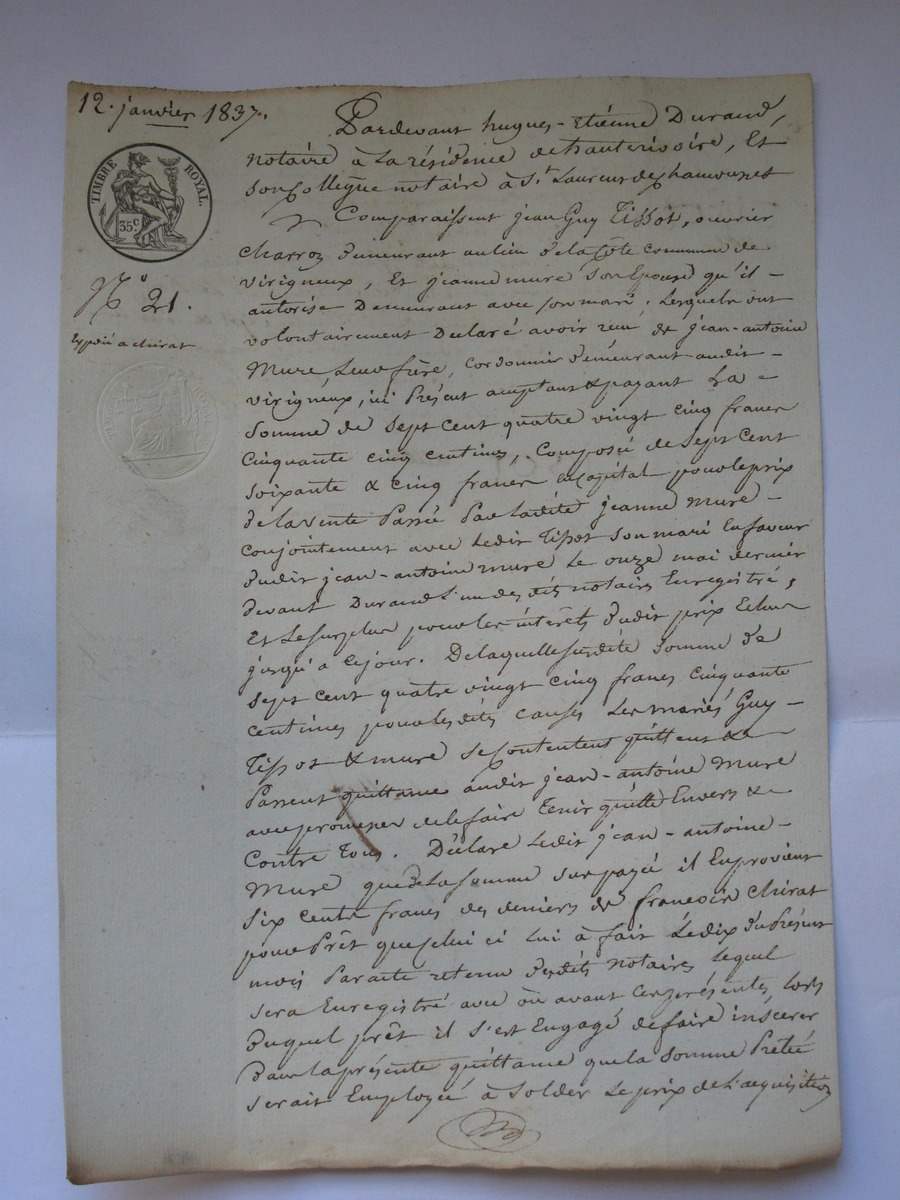 12. janvier 1837.
TIMBRE ROYAL.
35c
No 21.
Expédié a chirat
Pardevant hugues-Etiénne Durand,
notaire à La résidence de hauterivoire, Et
son Collegue notaire à St Laurent de Chamousset
Comparaissent jean Guy Tissot, ouvrier
charron demeurant au lieu de la Côte commune de
virigneux, Et jeanne mure son Epouse qu'il
autorise Demeurant avec son mari, Lesquels ont
volontairement Déclaré avoir reçu de jean-antoine
Mure, Leur frère, cordonnier demeurant audit
virigneux, ici Présent acceptant & payant La
Somme de Sept cent quatre vingt cinq francs
Cinquante cinq centimes, Composée de Sept Cent
soixante & cinq francs en Capital pour le prix
de la vente Passée Par Ladite jeanne mure
conjointement avec Ledit Tissot son mari En faveur
dudit jean-antoine mure Le onze mai dernier
devant Durand L'un desdits notaires Enregistré,
Et Le surplus pour les intérêts dudit prix Echus
jusqu'a ce jour. De laquelle susdite Somme de
Sept cent quatre vingt cinq francs cinquante
centimes pour lesdites causes Les mariés Guy
Tissot & mure se Contentent quittent &
Passent quittance audit jean-antoine Mure
avec promesse de le faire Tenir quitte Envers &
Contre Tous. Déclare Ledit jean-antoine
Mure que de La somme sus payée il En provient
Six cents francs des deniers de francois Chirat
pour Prêt que Celui ci Lui à fait Le dix du Présent
mois Par acte retenu desdits notaires Lequel
sera Enregistré avec ôu avant Ces présentes, Lors
Duquel prêt il s'est Engagé de faire insérer
Dans la présente quittance que la somme Prêtée
serait Employée à Solder Le prix de L'acquisition